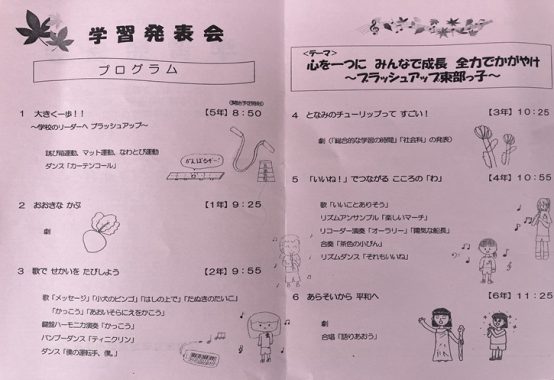 学習発表会
プログラム
(開始予定時刻)
1 大きく一歩！！ 【5年】8：50
～学校のリーダーへ ブラッシュアップ～
跳び箱運動、マット運動、なわとび運動
ダンス「カーテンコール」
がんばるぞー！
2 おおきな かぶ 【1年】9：25
劇
3 歌で せかいを たびしよう 【2年】9：55
歌「メッセージ」「小犬のビンゴ」「はしの上で」「たぬきのたいこ」
「かっこう」「あおいそらにえをかこう」
鍵盤ハーモニカ演奏「かっこう」
バンブーダンス「ティニクリン」
ダンス「僕の運転手、僕。」
＜テーマ＞
心を一つに みんなで成長 全力でかがやけ
～ブラッシュアップ東部っ子～
4 となみのチューリップって すごい！ 【3年】10：25
劇（「総合的な学習の時間」「社会科」の発表）
5 「いいね！」でつながる こころの「わ」 【4年】10：55
歌「いいことありそう」
リズムアンサンブル「楽しいマーチ」
リコーダー演奏「オーラリー」「陽気な船長」
合奏「茶色の小びん」
リズムダンス「それもいいね」
6 あらそいから 平和へ 【6年】11：25
劇
合唱「語りあおう」